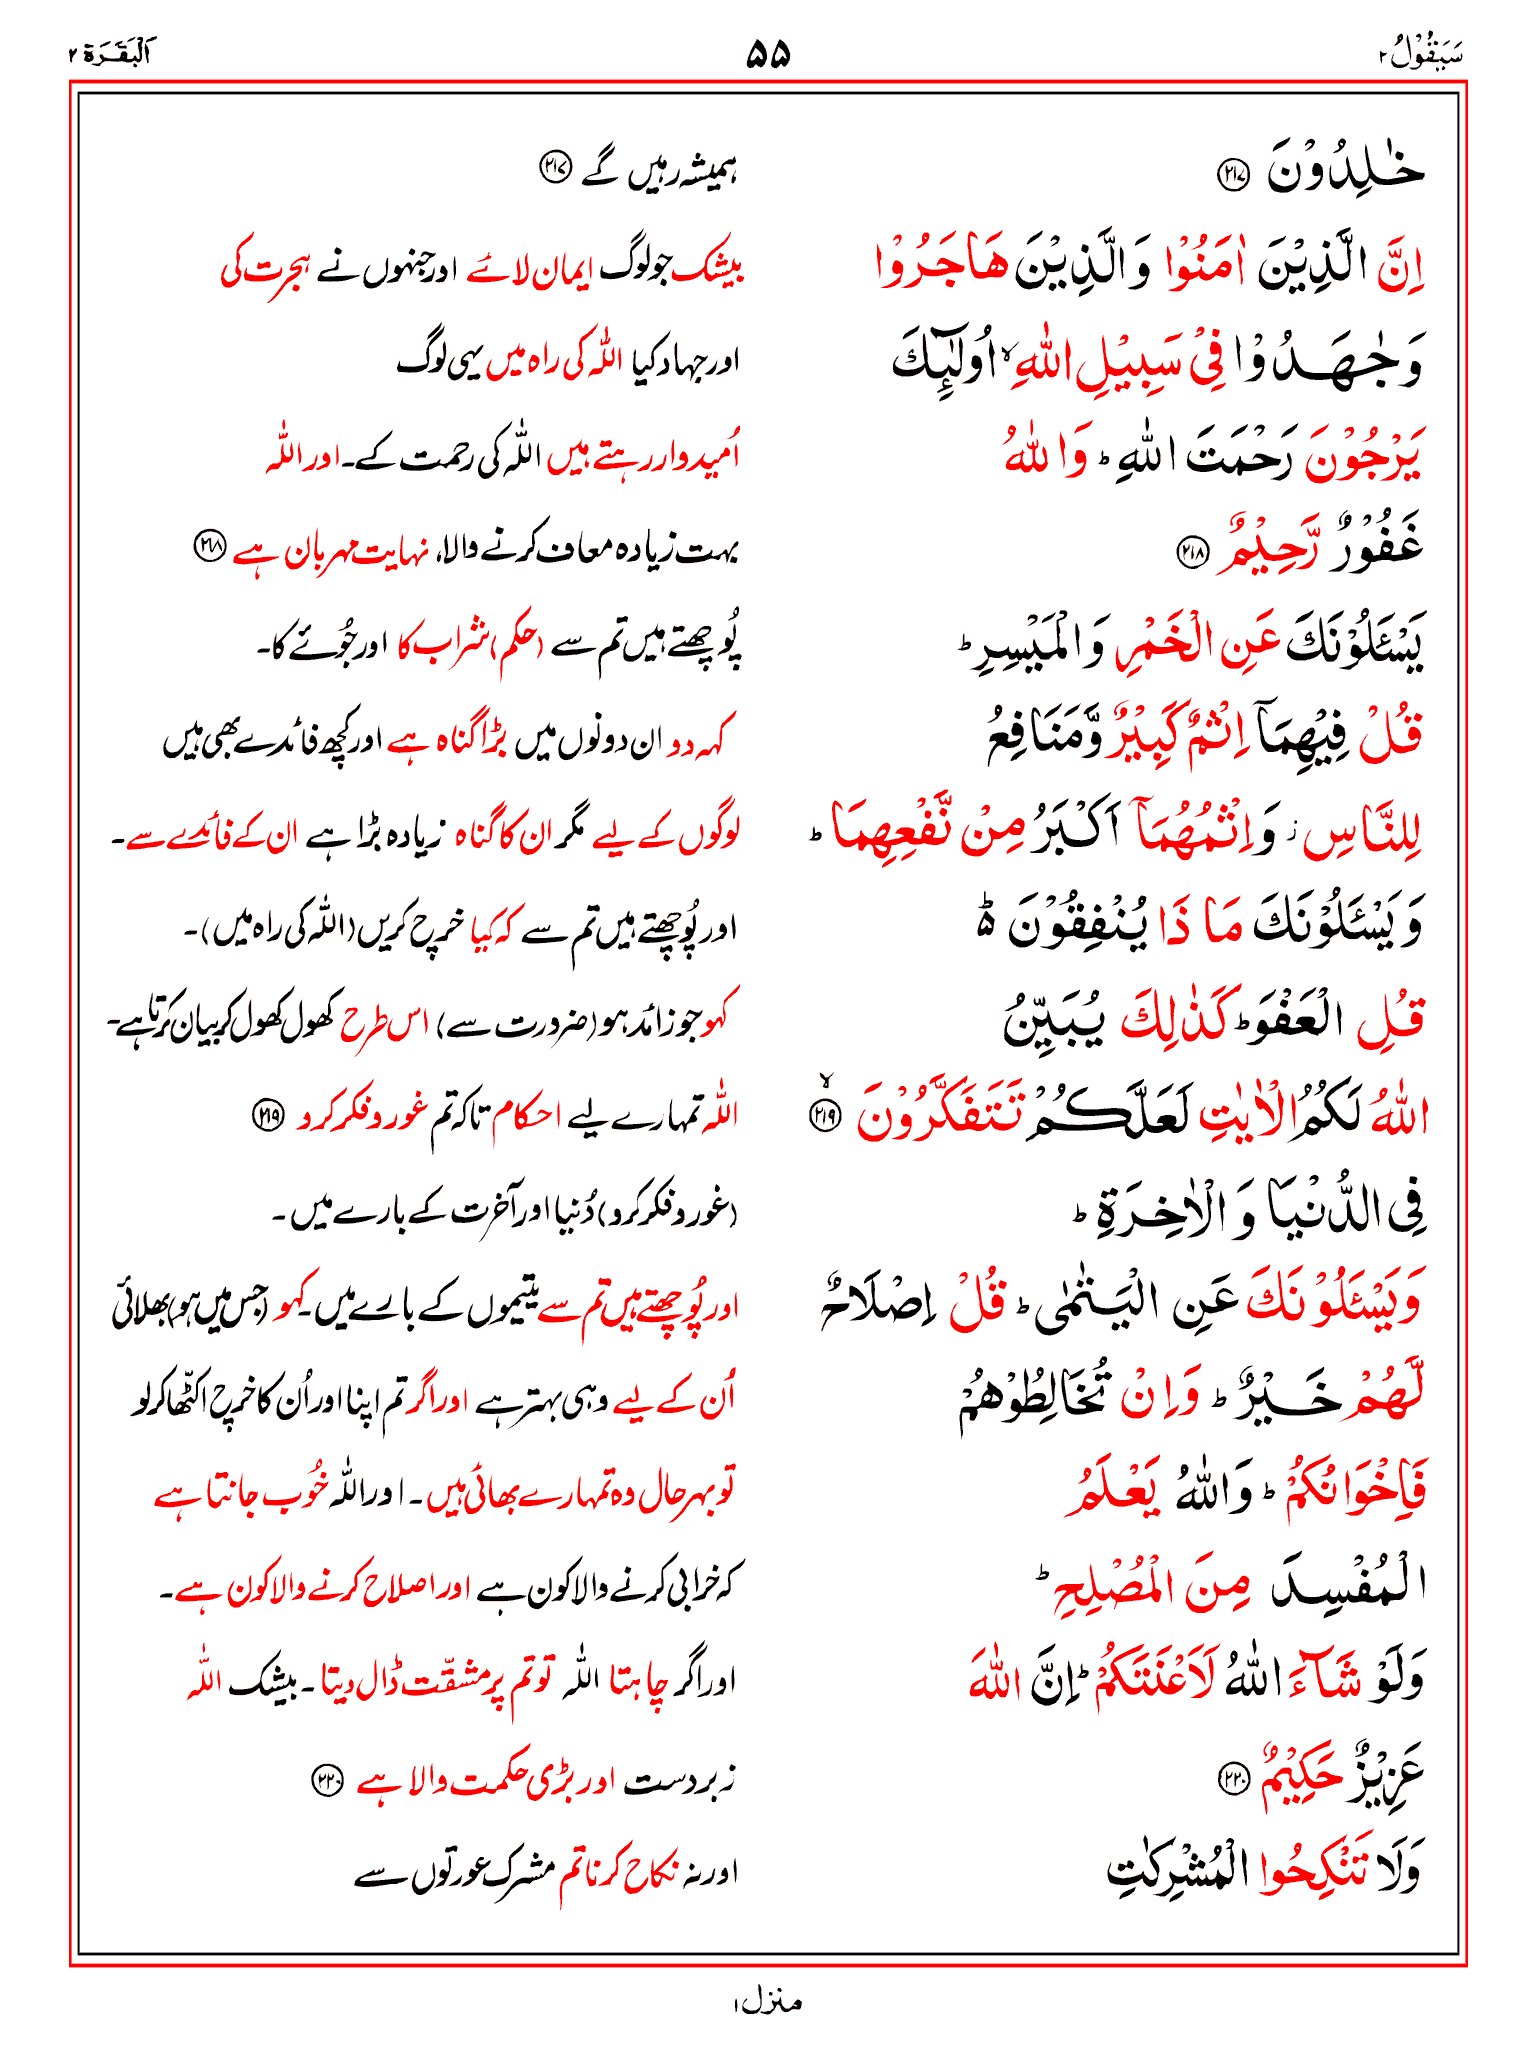 سَيَقُوْلُ ٢
۵۵
اَلْبَقَرَة ٢
خٰلِدُوْنَ ﴿٢١٧﴾
ہمیشہ رہیں گے ﴿٢١٧﴾
اِنَّ الَّذِيْنَ اٰمَنُوْا وَالَّذِيْنَ هَاجَرُوْا
بیشک جو لوگ ایمان لائے اور جنہوں نے ہجرت کی
وَجٰهَدُوْا فِىْ سَبِيْلِ اللّٰهِ ۙ اُولٰٓئِكَ
اور جہاد کیا اللّٰہ کی راہ میں یہی لوگ
يَرْجُوْنَ رَحْمَتَ اللّٰهِ ؕ وَاللّٰهُ
اُمیدوار رہتے ہیں اللّٰہ کی رحمت کے۔ اور اللّٰہ
غَفُوْرٌ رَّحِيْمٌ ﴿٢١٨﴾
بہت زیادہ معاف کرنے والا، نہایت مہربان ہے ﴿٢١٨﴾
يَسْـَٔلُوْنَكَ عَنِ الْخَمْرِ وَالْمَيْسِرِ ؕ
پُوچھتے ہیں تم سے (حکم) شراب کا اور جُوئے کا۔
قُلْ فِيْهِمَآ اِثْمٌ كَبِيْرٌ وَّمَنَافِعُ
کہہ دو ان دونوں میں بڑا گناہ ہے اور کچھ فائدے بھی ہیں
لِلنَّاسِ ؗ وَاِثْمُهُمَآ اَكْبَرُ مِنْ نَّفْعِهِمَا ؕ
لوگوں کے لیے مگر ان کا گناہ زیادہ بڑا ہے ان کے فائدے سے۔
وَيَسْـَٔلُوْنَكَ مَا ذَا يُنْفِقُوْنَ ۬ؕ
اور پُوچھتے ہیں تم سے کہ کیا خرچ کریں (اللّٰہ کی راہ میں)۔
قُلِ الْعَفْوَ ؕ كَذٰلِكَ يُبَيِّنُ
کہو جو زائد ہو (ضرورت سے) اس طرح کھول کھول کر بیان کرتا ہے۔
اللّٰهُ لَكُمُ الْاٰيٰتِ لَعَلَّكُمْ تَتَفَكَّرُوْنَ ﴿٢١٩﴾ ۙ
اللّٰہ تمہارے لیے احکام تاکہ تم غور و فکر کرو ﴿٢١٩﴾
فِى الدُّنْيَا وَالْاٰخِرَةِ ؕ
(غور و فکر کرو) دُنیا اور آخرت کے بارے میں۔
وَيَسْـَٔلُوْنَكَ عَنِ الْيَتٰمٰى ؕ قُلْ اِصْلَاحٌ
اور پُوچھتے ہیں تم سے یتیموں کے بارے میں۔ کہو (جس میں ہو) بھلائی
لَّهُمْ خَيْرٌ ؕ وَاِنْ تُخَالِطُوْهُمْ
اُن کے لیے وہی بہتر ہے اور اگر تم اپنا اور اُن کا خرچ اکٹھا کر لو
فَاِخْوَانُكُمْ ؕ وَاللّٰهُ يَعْلَمُ
تو بہر حال وہ تمہارے بھائی ہیں۔ اور اللّٰہ خُوب جانتا ہے
الْمُفْسِدَ مِنَ الْمُصْلِحِ ؕ
کہ خرابی کرنے والا کون ہے اور اصلاح کرنے والا کون ہے۔
وَلَوْ شَآءَ اللّٰهُ لَاَعْنَتَكُمْ ؕ اِنَّ اللّٰهَ
اور اگر چاہتا اللّٰہ تو تم پر مشقّت ڈال دیتا۔ بیشک اللّٰہ
عَزِيْزٌ حَكِيْمٌ ﴿٢٢٠﴾
زبردست اور بڑی حکمت والا ہے ﴿٢٢٠﴾
وَلَا تَنْكِحُوا الْمُشْرِكٰتِ
اور نہ نکاح کرنا تم مشرک عورتوں سے
منزل ١